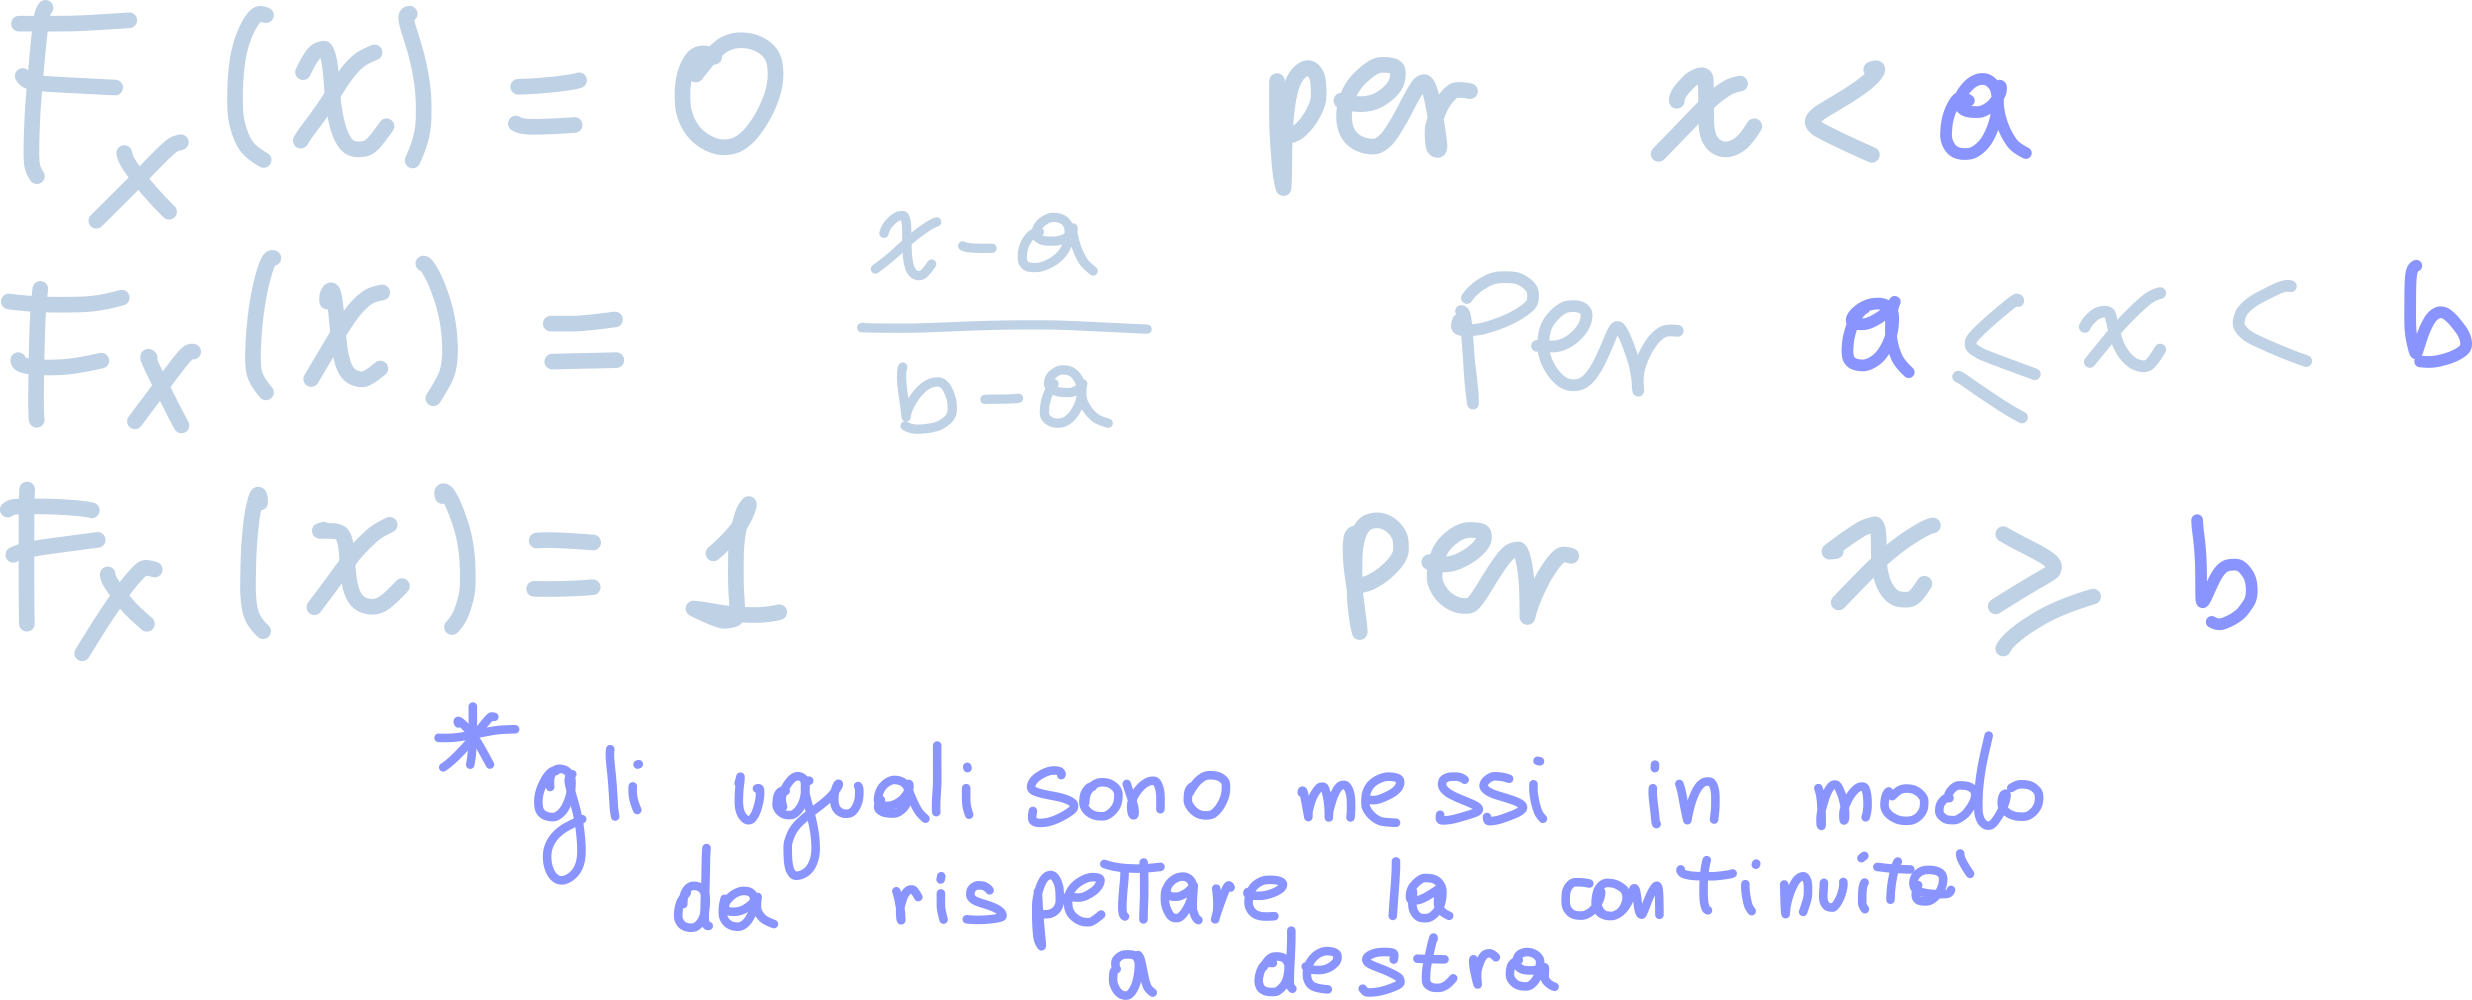 F_X (x) = 0 per x < a
F_X (x) = \frac{x - a}{b - a} per a ≤ x < b
F_X (x) = 1 per x ≥ b
* gli uguali sono messi in modo
da rispettare la continuita'
a destra